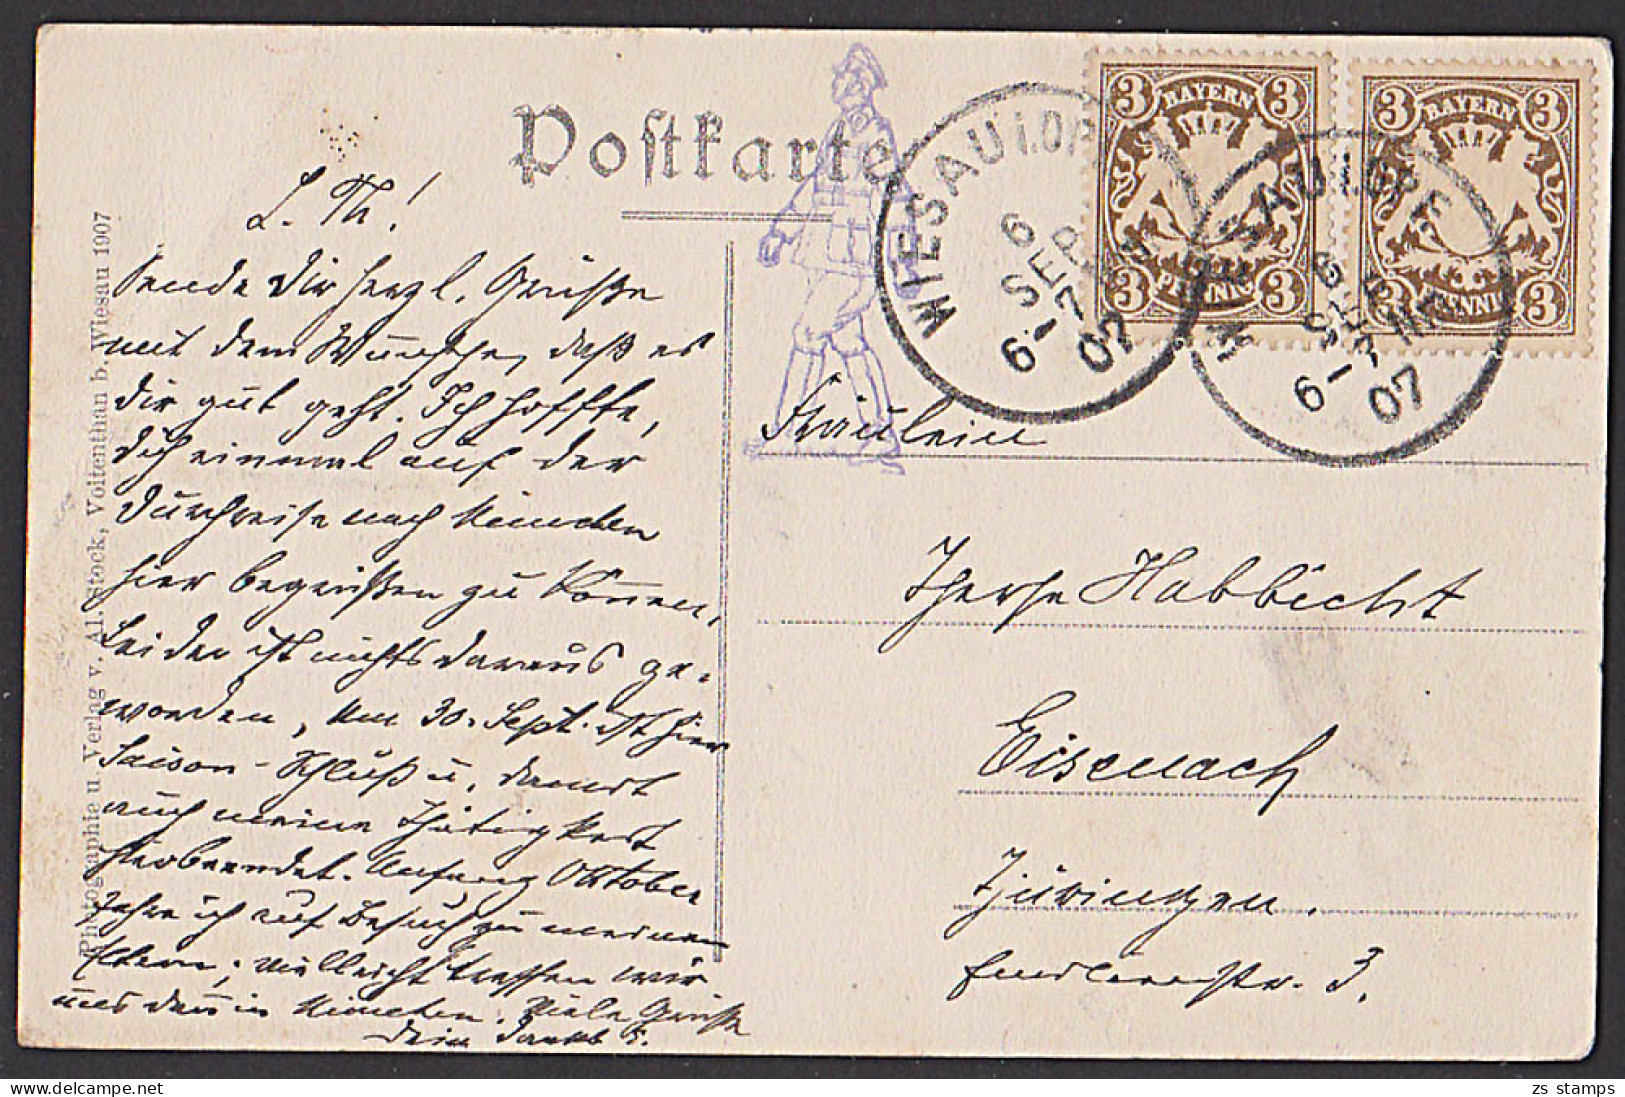 Postkarte
WIESAU i. OPF
6 SEP
6-7 N
07
WIESAU i. OPF
6 SEP
6-7 N
07
3 BAYERN 3
3 PFENNIG 3
3 BAYERN 3
3 PFENNIG 3
L. Th!
Sende Dir herzl. Grüße
mit dem Wunsche, daß es
Dir gut geht. Ich hoffte,
Dich einmal auf der
Durchreise nach München
hier begrüßen zu können,
Leider ist nichts daraus ge-
worden. Am 30. Sept. ist hier
Saison-Schluß u. damit
auch meine Thätigkeit
hier beendet. Anfang Oktober
fahre ich auf Besuch zu meinen
Eltern; vielleicht treffen wir
uns dann in München. Viele Grüße
Dein
Photographie u. Verlag v. Al. Stock, Voitenthan b. Wiesau 1907
Fräulein
Therese Habbicht
Eisenach
Thüringen.
3.
zs stamps